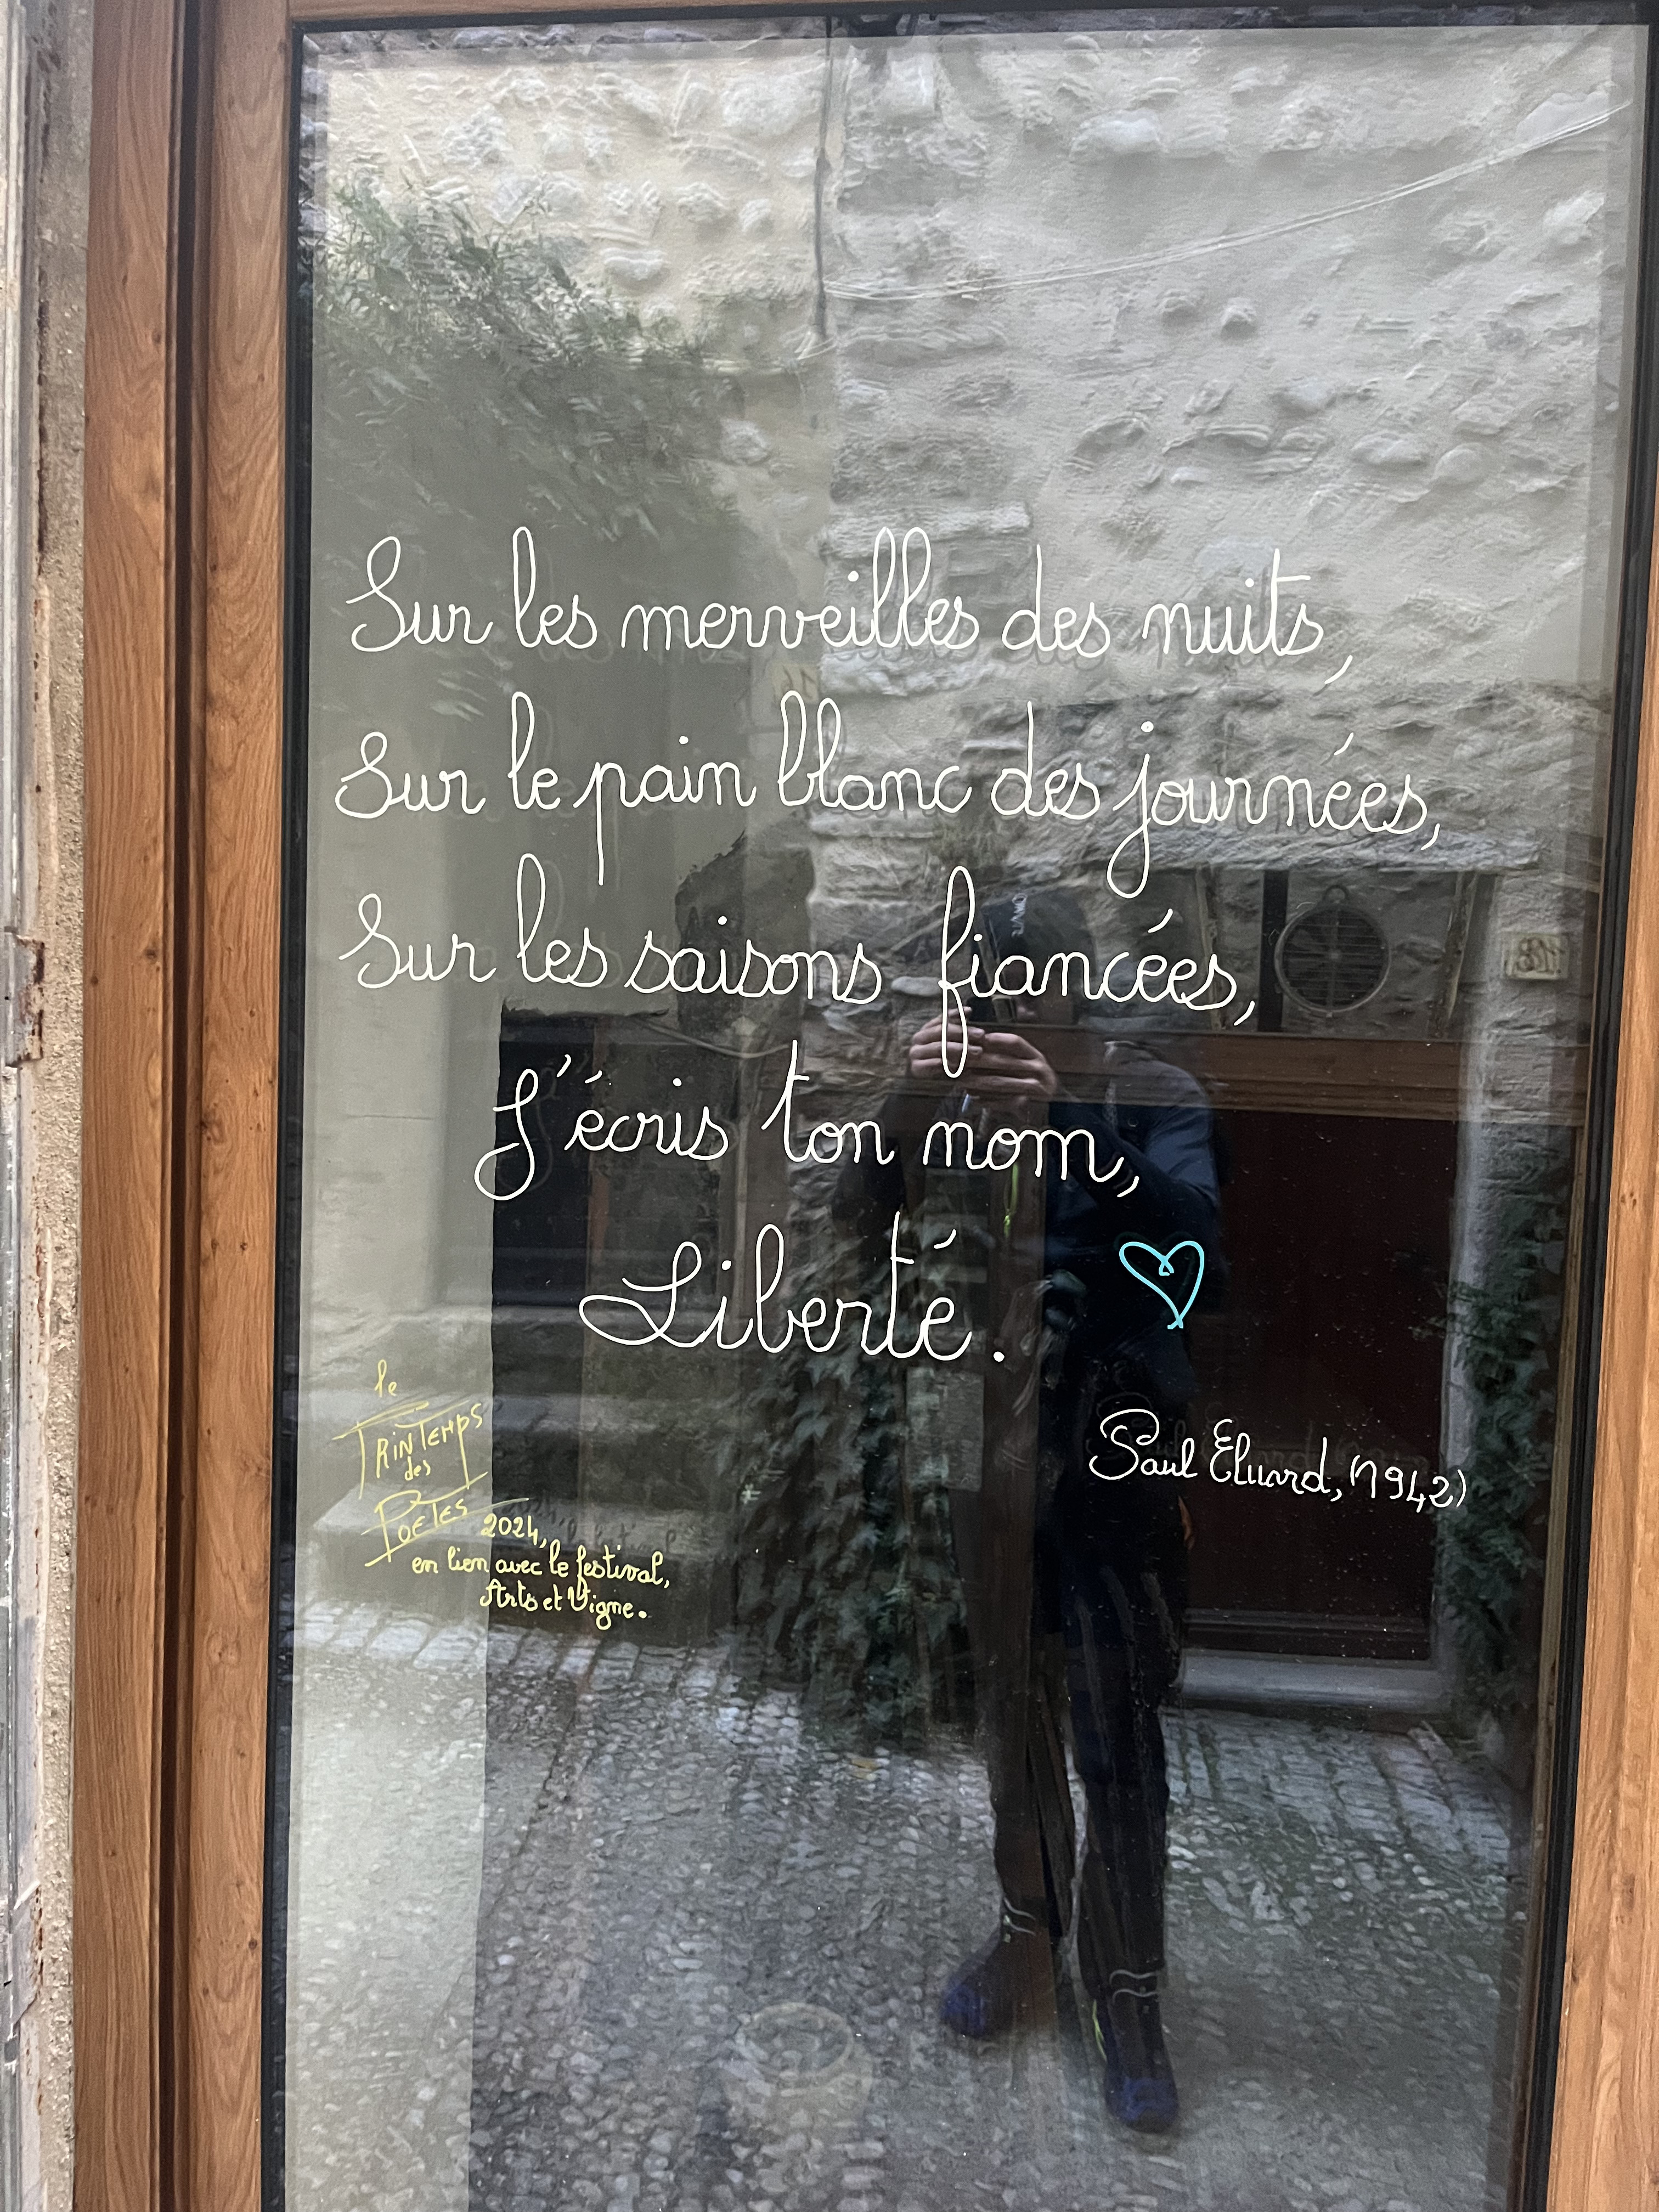 Sur les merveilles des nuits,
Sur le pain blanc des journées,
Sur les saisons fiancées,
J'écris ton nom,
Liberté.
Paul Eluard, (1942)
le
PRINTEMPS
des
POETES
2024,
en lien avec le festival,
Arts et Vigne.